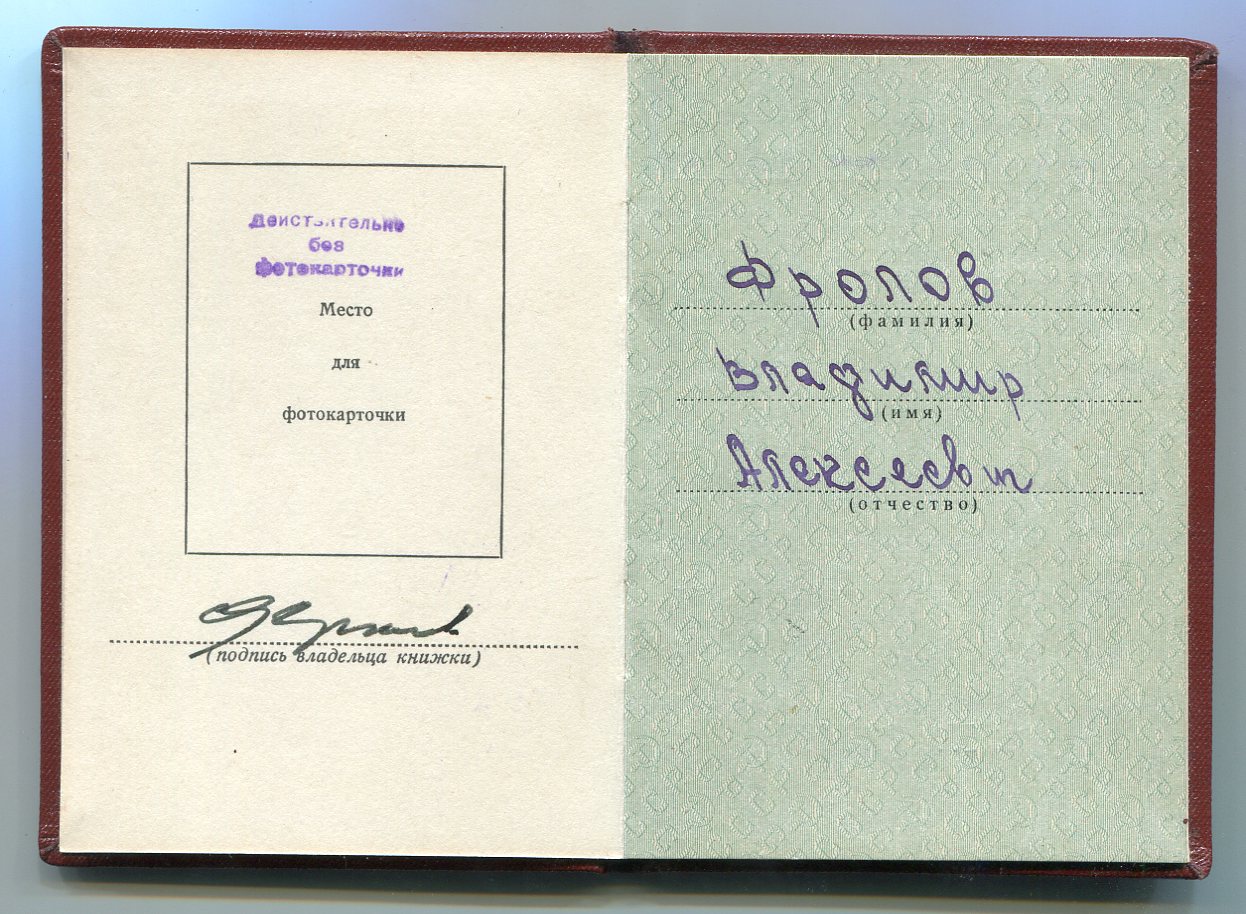 Действительно
без
фотокарточки
Место
для
фотокарточки
(подпись владельца книжки)
Фролов
(фамилия)
Владимир
(имя)
Алексеевич
(отчество)